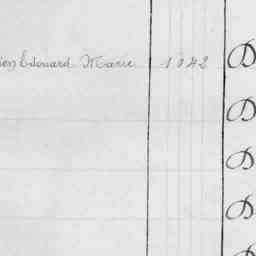 Edouard Marie 1042 D
D
D
D
D